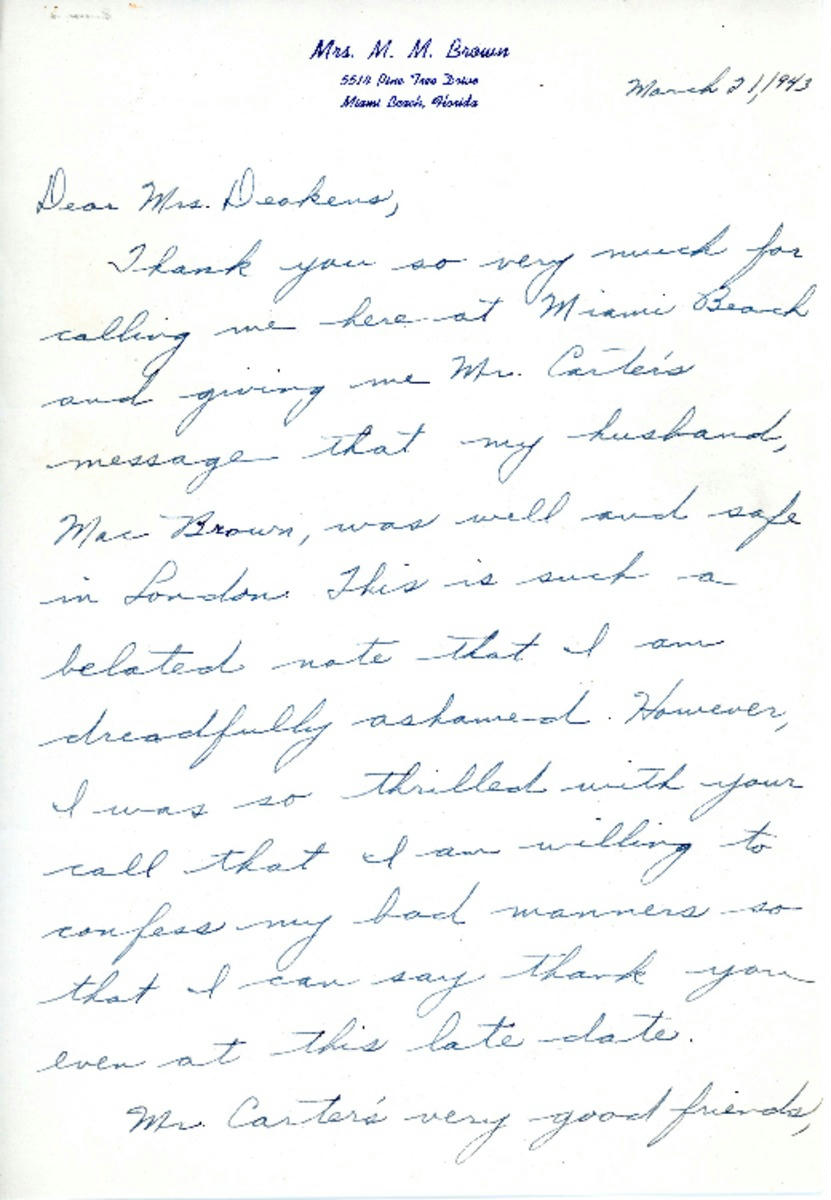 Mrs. M. M. Brown
5514 Pine Tree Drive
Miami Beach, Florida
March 21, 1943
Dear Mrs. Deakens,
Thank you so very much for
calling me here at Miami Beach
and giving me Mr. Carter's
message that my husband,
Mac Brown, was well and safe
in London. This is such a
belated note that I am
dreadfully ashamed. However,
I was so thrilled with your
call that I am willing to
confess my bad manners so
that I can say thank you
even at this late date.
Mr. Carter's very good friends,